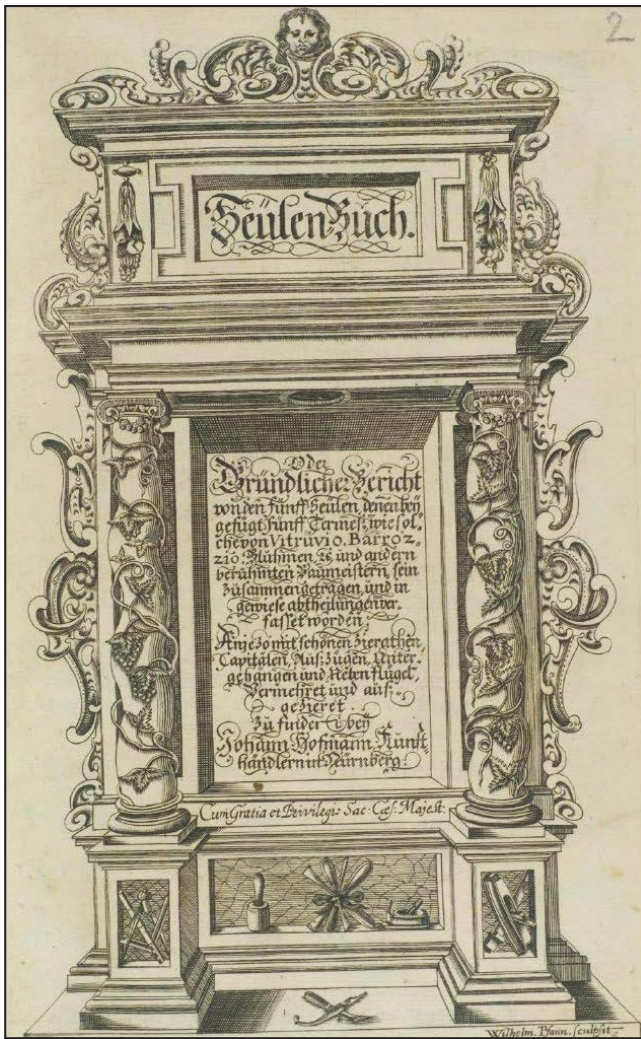 2
Seülen Büch.
Oder
Gründlicher Bericht
von den fünff Seülen, denen beÿ
gefügt fünff Termes, wie sol„
che von Vitruvio, Barroz„
zio, Blühmen, ꝛc. und andern
berühmten Baumeistern, sein
zusammen getragen, und in
gewiese abtheilungen ver„
fasset worden:
Anjezo mit schönen Zierathen,
Capitälen, Auszügen, Unter„
gehangen und Neben flügel,
Vermehret und auf„
gezieret.
Zu finden beÿ
Johann Hofmann, Kunst„
händlern in Nürnberg.
Cum Gratia et Privilegio Sac: Cæs: Majest:
Wilhelm. Pfann. sculpsit.